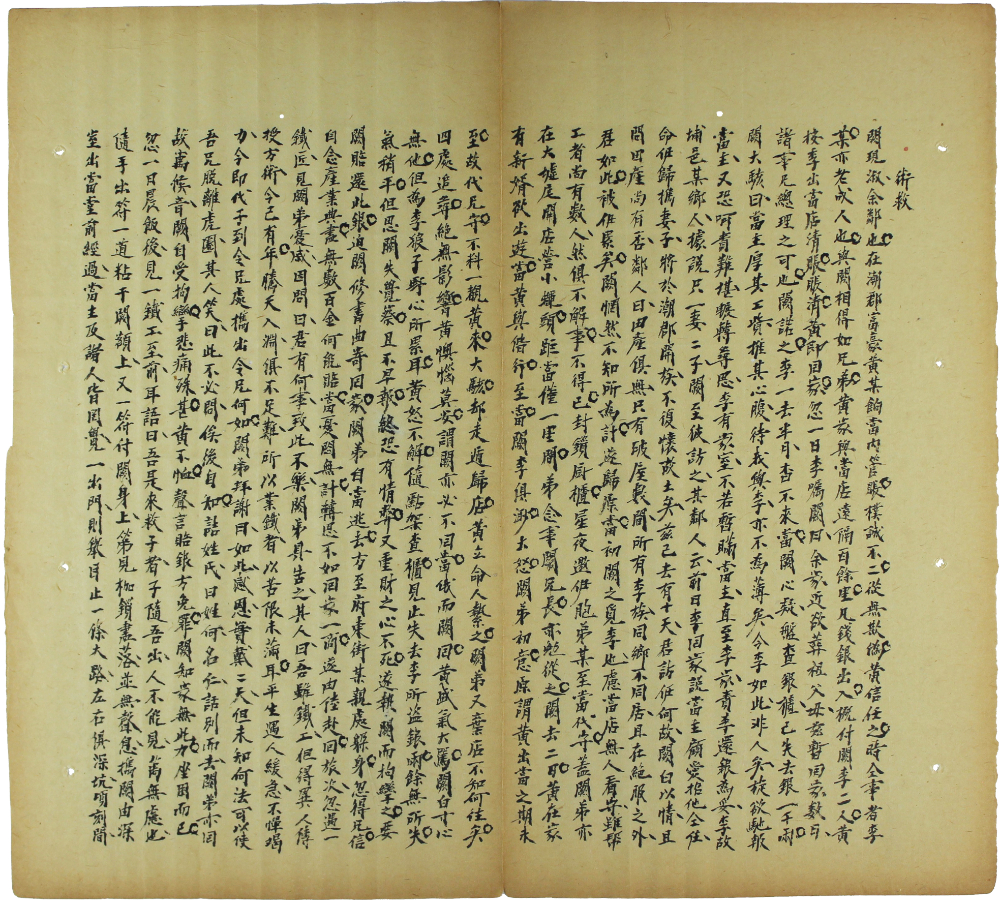 術救
關現淑余鄰也在潮郡富豪黃某餉當內管賬樸誠不二從無欺騙黃信任之時仝事者李
某亦老成人也與關相得如兄弟黃家與當店遠隔百餘里凡錢銀出入概付關李二人黃
按季出當店清賬賬清黃即回家忽一日李囑關曰余家近欲葬祖父母茲暫回家數月
諸事兄總理之可也關諾之李一去半月杳不來當關心疑盤查銀櫃已失去銀一千兩
關大駭曰當主厚其工資推其心腹待我與李亦不為薄矣今李如此非人矣旋欲馳報
當主又恐呵責難堪輾轉尋思李有家室不若暫瞞當主直至李家責李還銀為妥李故
埔邑某鄉人據說只一妻二子關至彼訪之其鄰人云前日李回家說當主願愛他仝任
命他歸携妻子將於潮郡開族不復懷故土矣茲已去有十天君訪他何故關白以情且
問田產尚有否鄰人曰田產俱無只有破屋數間所有李族同鄉不同居且在絕服之外
君如此被他累矣關惘然不知所為計遂歸原當初關之覓李也慮當店無人看守雖幫
工者尚有數人然俱不解事不得已封鎖廚櫃星夜邀他胞弟某至當代守蓋關弟亦
在大墟尾開店營小賺頭距當僅一里關弟念事關兄長亦慨從之關去二日黃在家
有新婿欲出遊當黃與偕行至當關李俱渺大怒關弟初意原謂黃出當之期未
至故代兄守不料一觀黃來大駭却走遁歸店黃立命人繫之關弟又棄店不知何往矣
四處追尋絕無影響黃懊惱莫安謂關亦必不回當俄而關回黃盛氣大罵關白寸心
無他但為李狼子野心所累耳黃怒不解隨點架查櫃見止失去李所盜銀兩餘無所失
氣稍平但思關失覺察且不早報終恐有情弊又重財之心不死遂執關而拘攣之要
關賠還此銀迫關修書曲寄回家關弟自當逃去方至府東街某親處躲身忽得兄信
自念產業典盡無數百金何能賠當憂悶無計轉思不如回家一商遂由陸赴回旅次忽遇一
鐵匠見關弟憂戚因問曰君有何事致此不樂關弟具告之其人曰吾雖鐵工但得異人傳
授方術今已有年騰天入淵俱不足難所以業鐵者以苦限未滿耳平生遇人緩急不憚竭
力今即代子到令兄處攜出令兄何如關弟拜謝曰如此感恩實戴二天但未知何法可以使
吾兄脫離虎圈其人笑曰此不必問俟後自知詰姓氏曰姓何名仁話別而去關弟亦回
故寓候音關自受拘攣悲痛殊甚黃不恤聲言賠銀方免罪關知家無此力座困而已
忽一日晨飯後見一鐵工至前耳語曰吾是來救子者子隨吾出人不能見爲無慮也
隨手出符一道粘于關額上又一符付關身上第見枷鎖盡落並無聲息攜關由深
室出當堂前經過當主及諸人皆罔覺一出門則舉目止一條大路左右俱深坑頃刻間